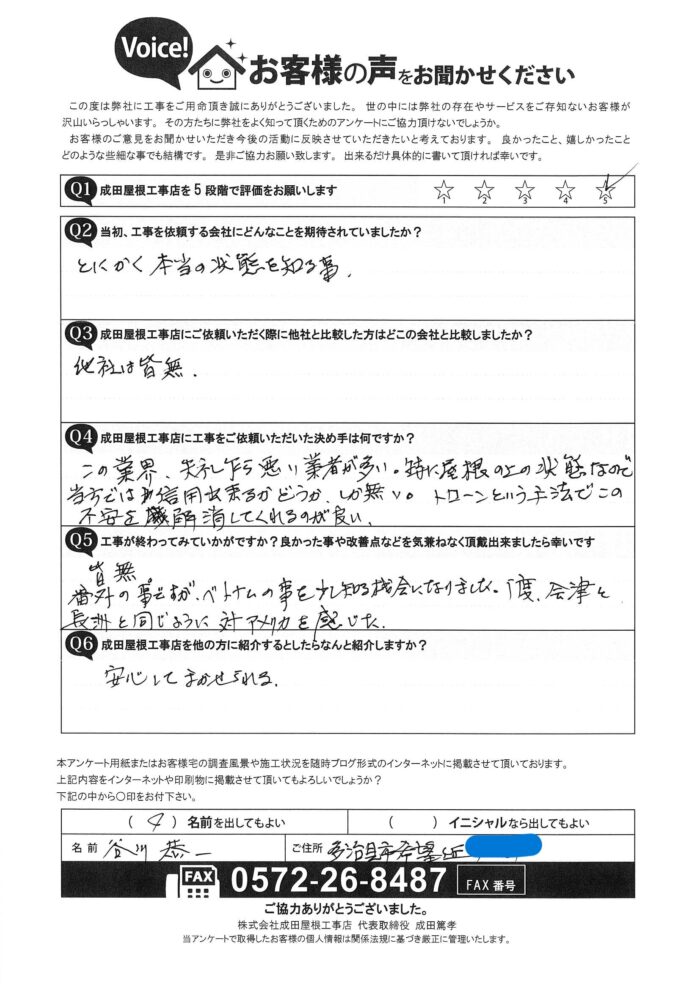 Voice!
お客様の声をお聞かせください
この度は弊社に工事をご用命頂き誠にありがとうございました。 世の中には弊社の存在やサービスをご存知ないお客様が
沢山いらっしゃいます。 その方たちに弊社をよく知って頂くためのアンケートにご協力頂けないでしょうか。
お客様のご意見をお聞かせいただき今後の活動に反映させていただきたいと考えております。 良かったこと、嬉しかったこと
どのような些細な事でも結構です。 是非ご協力お願い致します。 出来るだけ具体的に書いて頂ければ幸いです。
Q1 成田屋根工事店を5段階で評価をお願いします
1 2 3 4 5
Q2 当初、工事を依頼する会社にどんなことを期待されていましたか?
とにかく本当の状態を知る事.
Q3 成田屋根工事店にご依頼いただく際に他社と比較した方はどこの会社と比較しましたか?
他社は皆無.
Q4 成田屋根工事店に工事をご依頼いただいた決め手は何ですか?
この業界、失礼乍ら悪い業者が多い。特に屋根の上の状態なので
当方では信用出来るかどうか、しか無い。トローンという手法でこの
不安を解消してくれるのが良い.
Q5 工事が終わってみていかがですか?良かった事や改善点などを気兼ねなく頂戴出来ましたら幸いです
皆無
番外の事ですが、ベトナムの事を少し知る機会になりました。1度、会津と
長州と同じように対アメリカを感じた.
Q6 成田屋根工事店を他の方に紹介するとしたらなんと紹介しますか?
安心してまかせられる.
本アンケート用紙またはお客様宅の調査風景や施工状況を随時ブログ形式のインターネットに掲載させて頂いております。
上記内容をインターネットや印刷物に掲載させて頂いてもよろしいでしょうか?
下記の中から〇印をお付下さい。
( ) 名前を出してもよい ( ) イニシャルなら出してもよい
名前 谷川 恭一 ご住所 多治見市希望ヶ丘
FAX 0572-26-8487 FAX番号
ご協力ありがとうございました。
株式会社成田屋根工事店 代表取締役 成田篤孝
当アンケートで取得したお客様の個人情報は関係法規に基づき厳正に管理いたします。